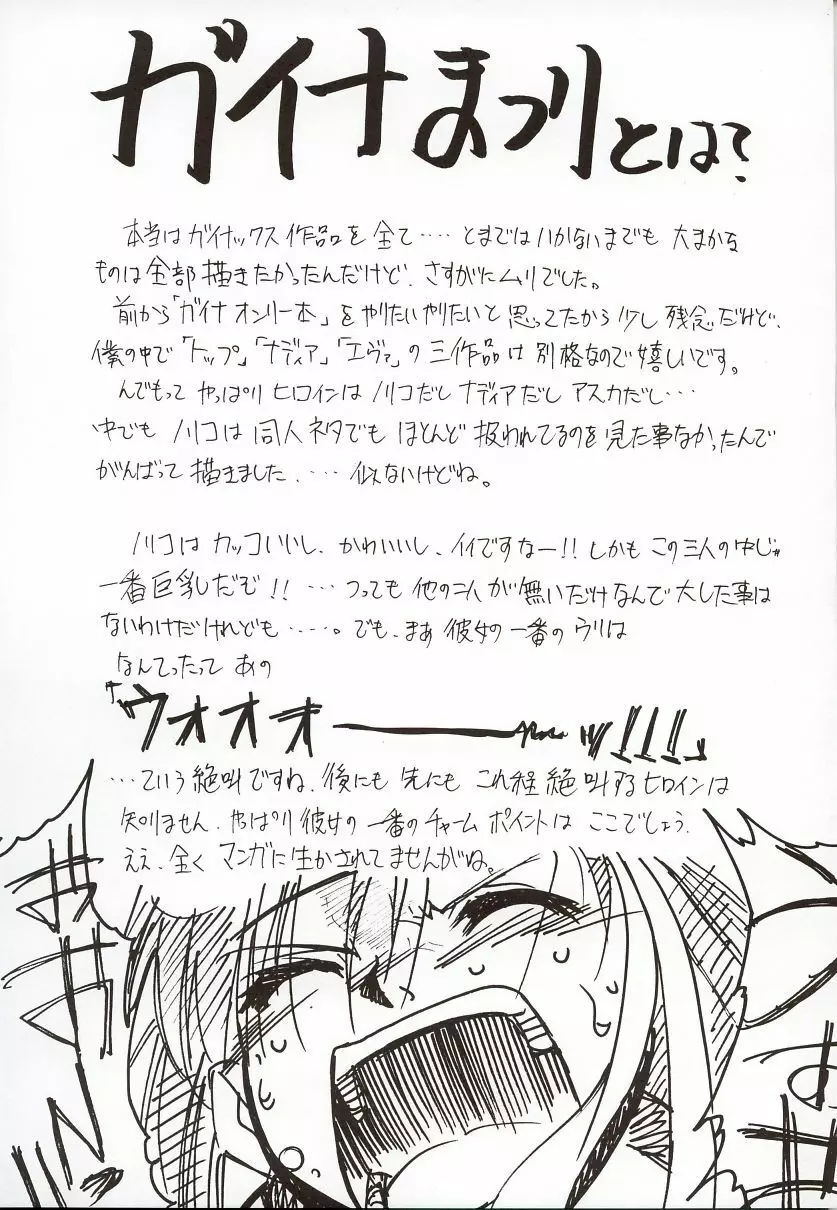 ガイナまつりとは?
本当はガイナックス作品を全て‥‥とまではいかないまでも 大まかな
ものは全部描きたかったんだけど、さすがにムリでした。
前から「ガイナオンリー本」をやりたいやりたいと思ってたから少し残念だけど、
僕の中で「トップ」「ナディア」「エヴァ」の三作品は別格なので嬉しいです。
んでもって やっぱりヒロインはノリコだし ナディアだし アスカだし…
中でもノリコは同人ネタでもほとんど扱われてるのを見た事なかったんで
がんばって描きました、‥‥似てないけどね。
ノリコはカッコいいし、かわいいし、イイですなー!! しかもこの三人の中じゃ
一番巨乳だぞ!! …つっても他の二人が無いだけなんで大した事は
ないわけだけれども……。でも、まあ彼女の一番のウリは
なんてったって あの
「ウオオオ――――ッ!!!」
…ていう絶叫ですね、後にも先にもこれ程絶叫するヒロインは
知りません、やっぱり彼女の一番のチャームポイントはここでしょう。
ええ、全くマンガに生かされてませんがね。